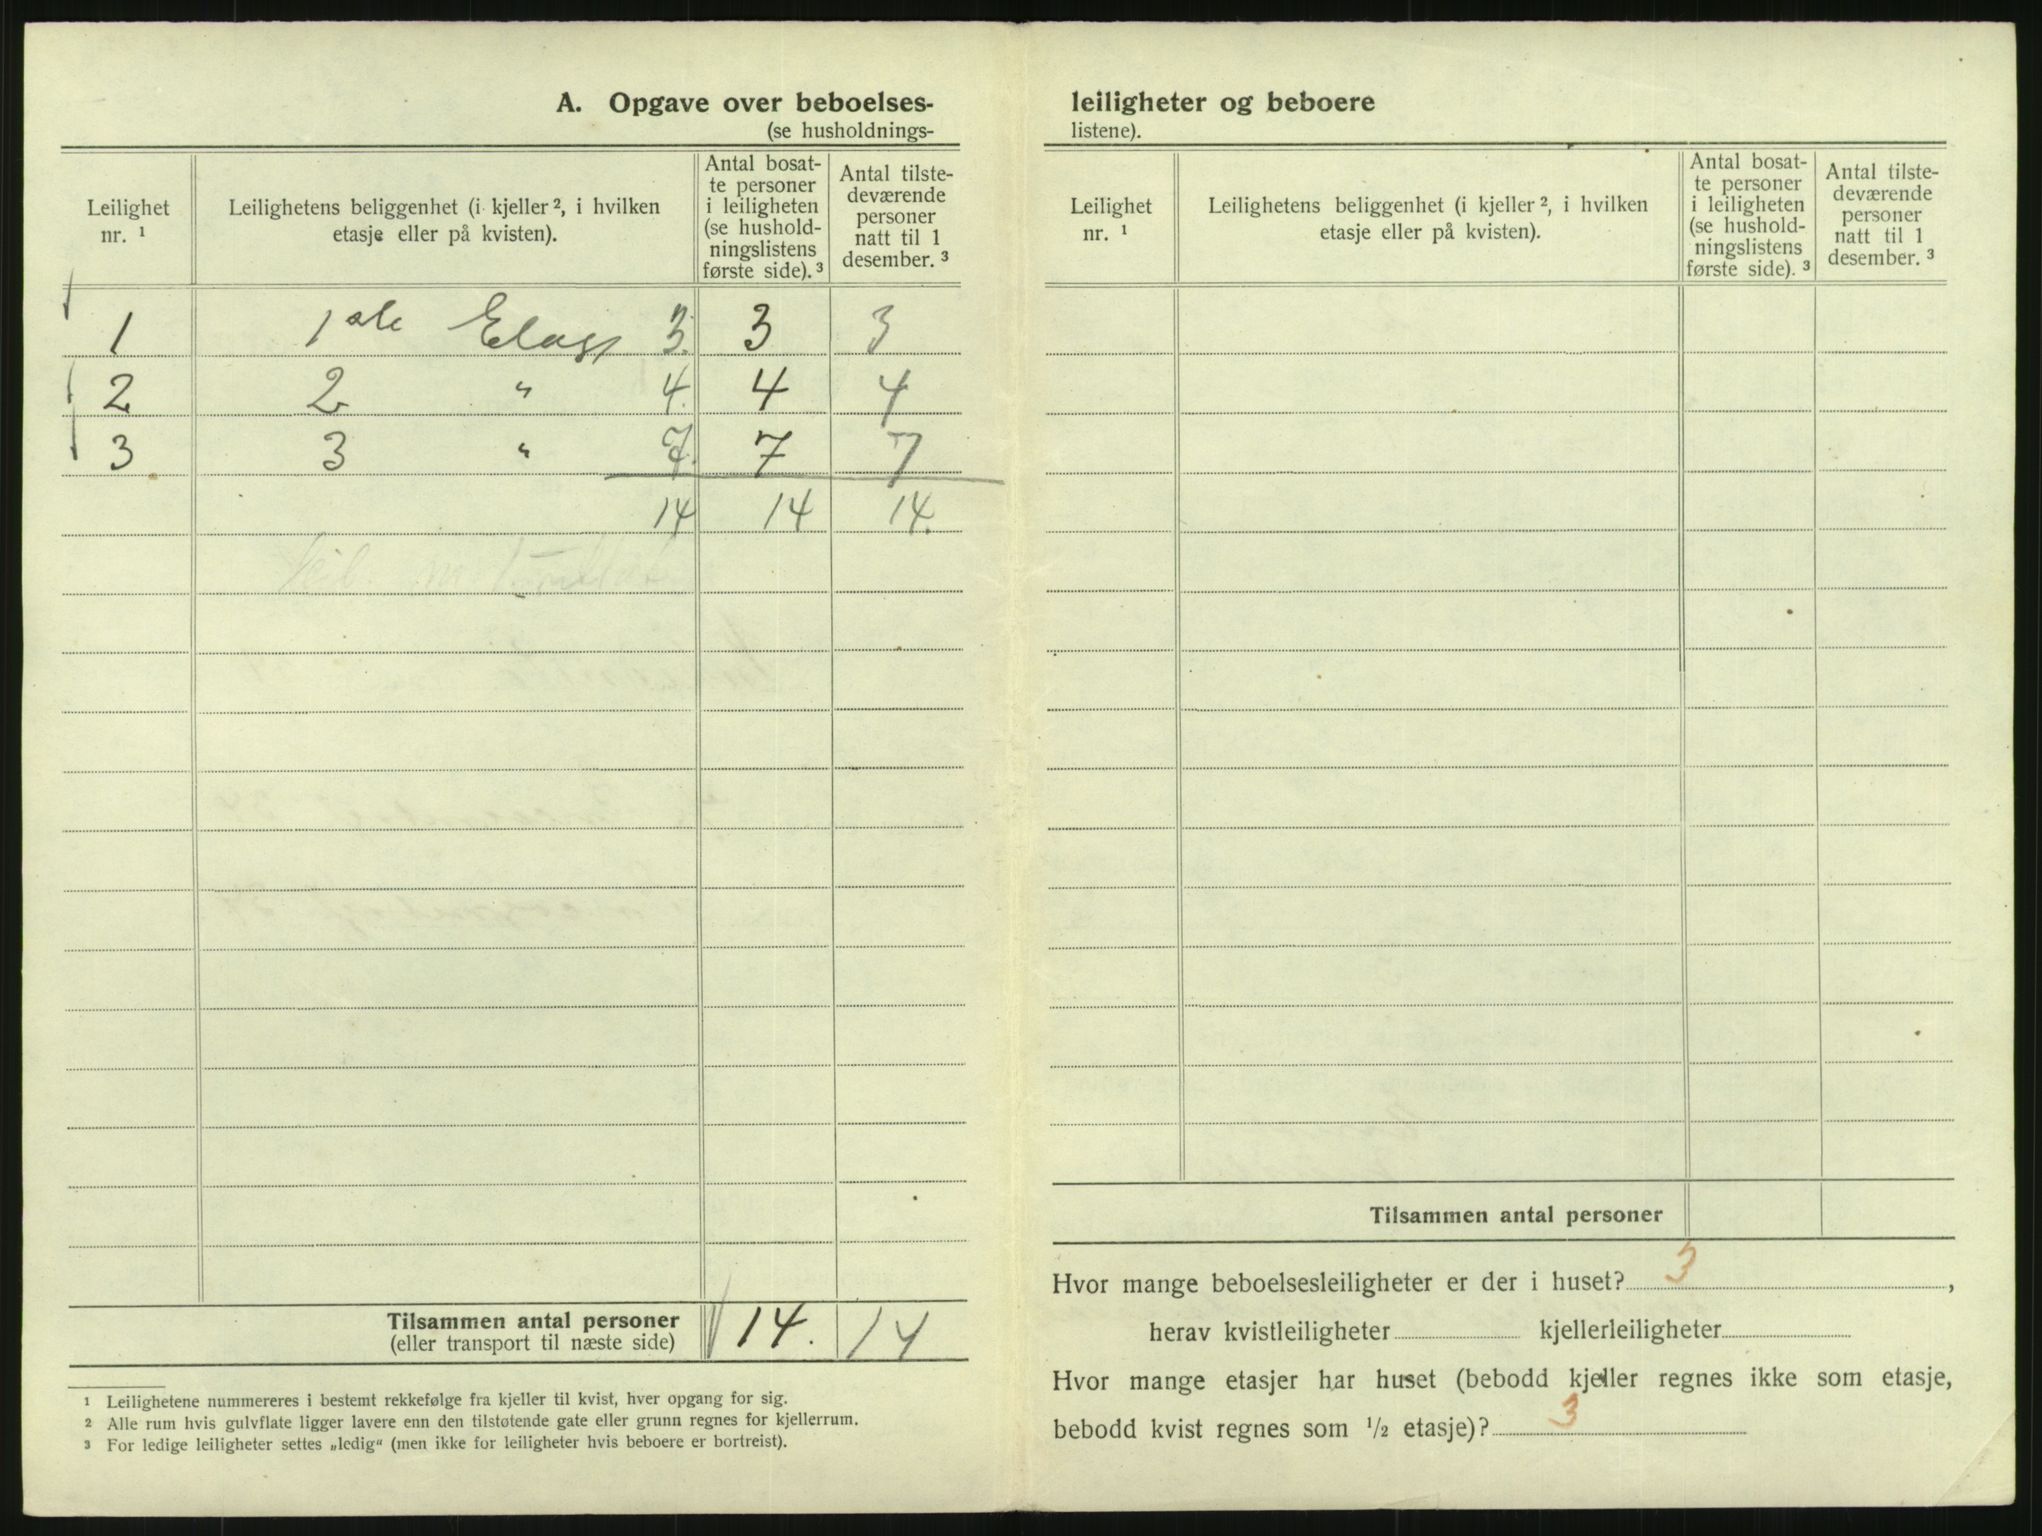 A. Opgave over beboelses-
(se husholdnings-
Leilighet nr. ¹
Leilighetens beliggenhet (i kjeller ², i hvilken
etasje eller på kvisten).
Antal bosat-
te personer
i leiligheten
(se hushold-
ningslistens
første side). ³
Antal tilste-
deværende
personer
natt til 1
desember. ³
1 1ste Etage 3. 3 3
2 2 " 4. 4 4
3 3 " 7. 7 7
14 14 14.
Tilsammen antal personer 14. 14
(eller transport til næste side)
¹ Leilighetene nummereres i bestemt rekkefølge fra kjeller til kvist, hver opgang for sig.
² Alle rum hvis gulvflate ligger lavere enn den tilstøtende gate eller grunn regnes for kjellerrum.
³ For ledige leiligheter settes „ledig“ (men ikke for leiligheter hvis beboere er bortreist).
leiligheter og beboere
listene).
Leilighet nr. ¹
Leilighetens beliggenhet (i kjeller ², i hvilken
etasje eller på kvisten).
Antal bosat-
te personer
i leiligheten
(se hushold-
ningslistens
første side). ³
Antal tilste-
deværende
personer
natt til 1
desember. ³
Tilsammen antal personer
Hvor mange beboelsesleiligheter er der i huset? 3,
herav kvistleiligheter kjellerleiligheter
Hvor mange etasjer har huset (bebodd kjeller regnes ikke som etasje,
bebodd kvist regnes som ½ etasje)? 3